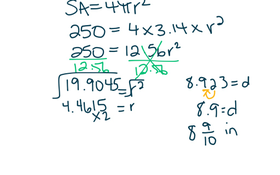 SA = 4πr²
250 = 4 x 3.14 x r²
250 = 12.56r²
12.56 12.56
√19.9045 = √r²
4.4615 = r
x2
8.923 = d
8.9 = d
8 9/10 in